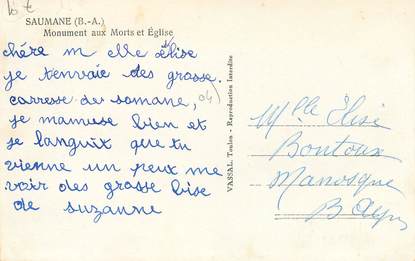 10 €
SAUMANE (B.-A.)
Monument aux Morts et Église
chére m elle Élise
je t'envaie des grosse.
carresse de somane,
04)
je mamuse bien et
je languix que tu
vienne un peux me
voir des grosse bise
de suzanne
VASSAL, Toulon - Reproduction Interdite
Mlle Élise
Bontoux
Manosque
B Alpes